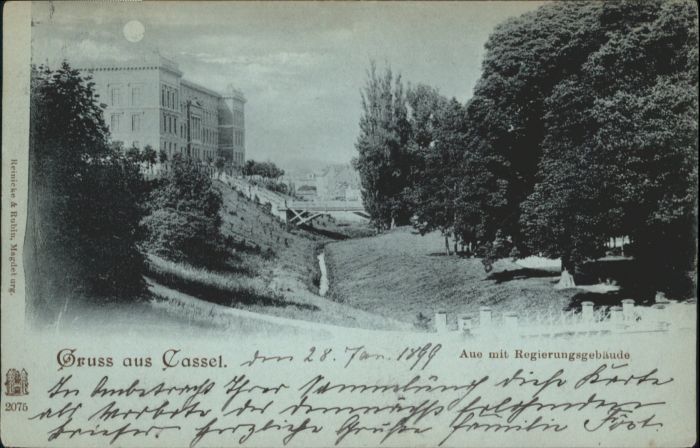 Reinicke & Rubin, Magdeburg.
2075
Gruss aus Cassel. den 28. Jan. 1899
Aue mit Regierungsgebäude
In Anbetracht Ihrer Sammlung diese Karte
als Vorbote der demnächst folgenden
Briefer. Herzliche Grüße Familie